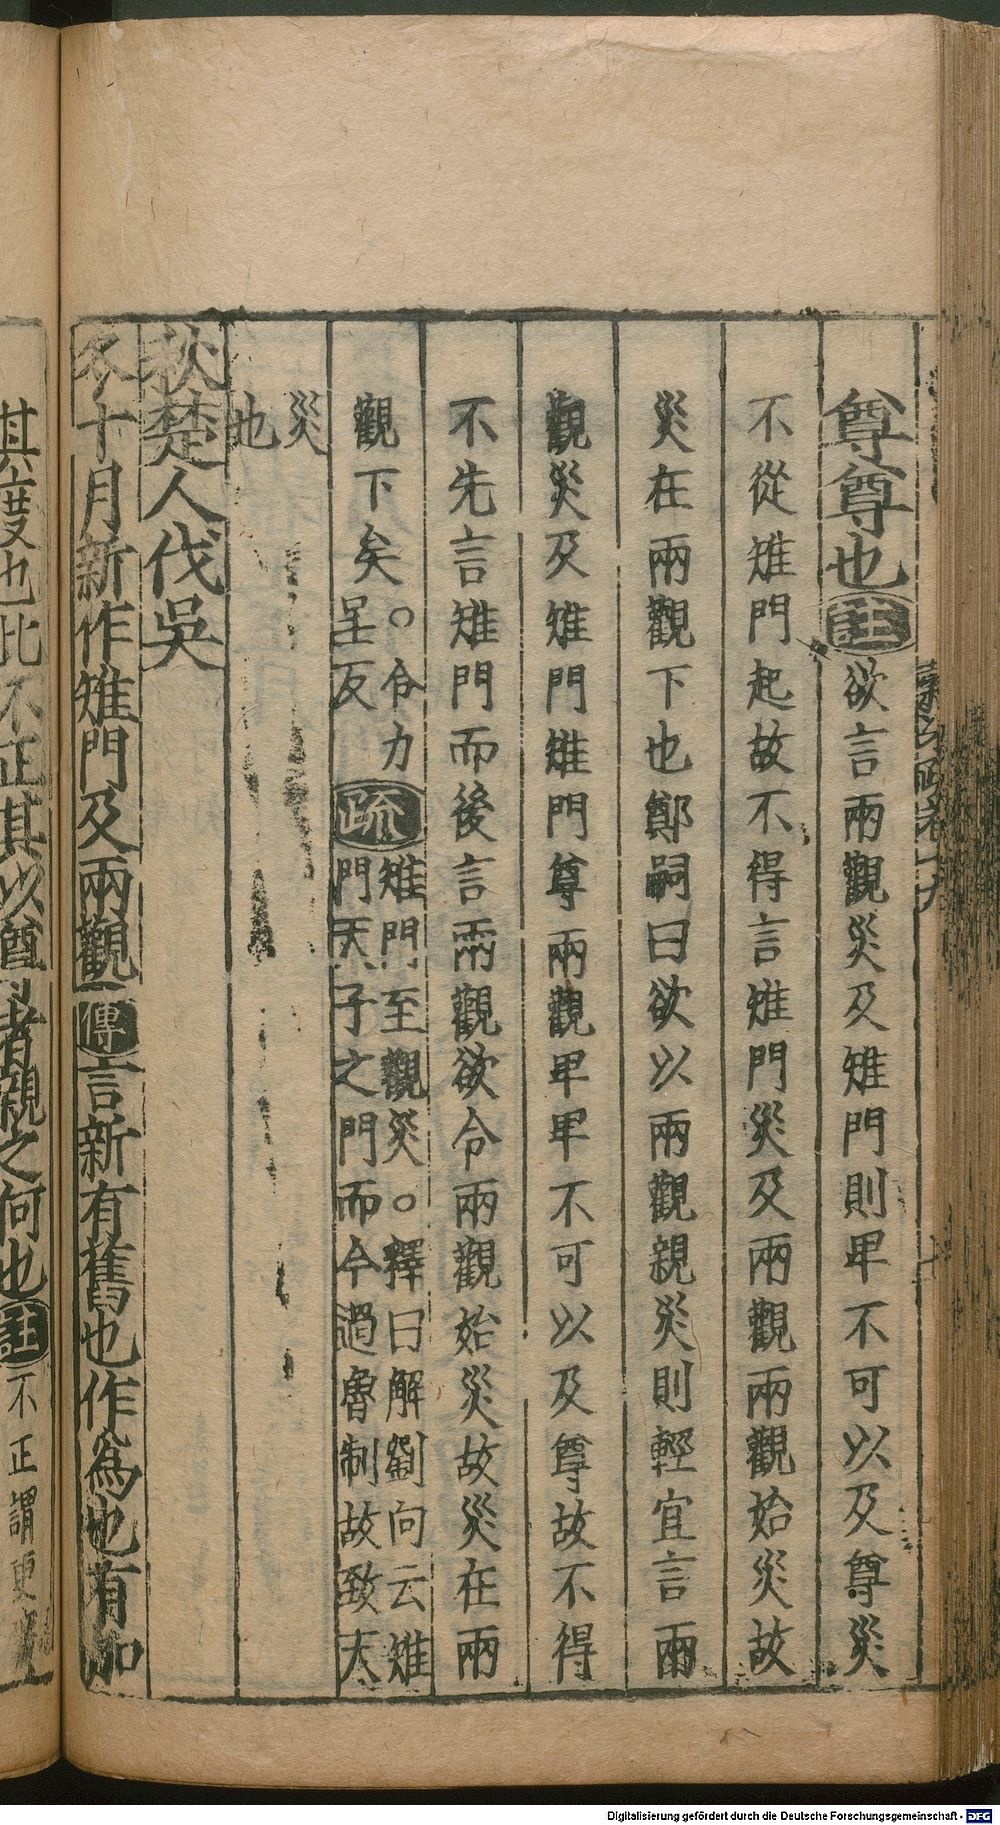 尊尊也註欲言兩觀災及雉門則卑不可以及尊災
不從雉門起故不得言雉門災及兩觀兩觀始災故
災在兩觀下也鄭嗣曰欲以兩觀親災則輕宜言兩
觀災及雉門雉門尊兩觀卑卑不可以及尊故不得
不先言雉門而後言兩觀欲令兩觀始災故災在兩
觀下矣○令力
呈反
疏雉門至觀災○釋曰解劉向云雉
門天子之門而今過魯制故致天
災
也
秋楚人伐吳
冬十月新作雉門及兩觀傳言新有舊也作爲也有加
其度也此不正其以尊者親之何也註不正謂更
Digitalisierung gefördert durch die Deutsche Forschungsgemeinschaft - DFG